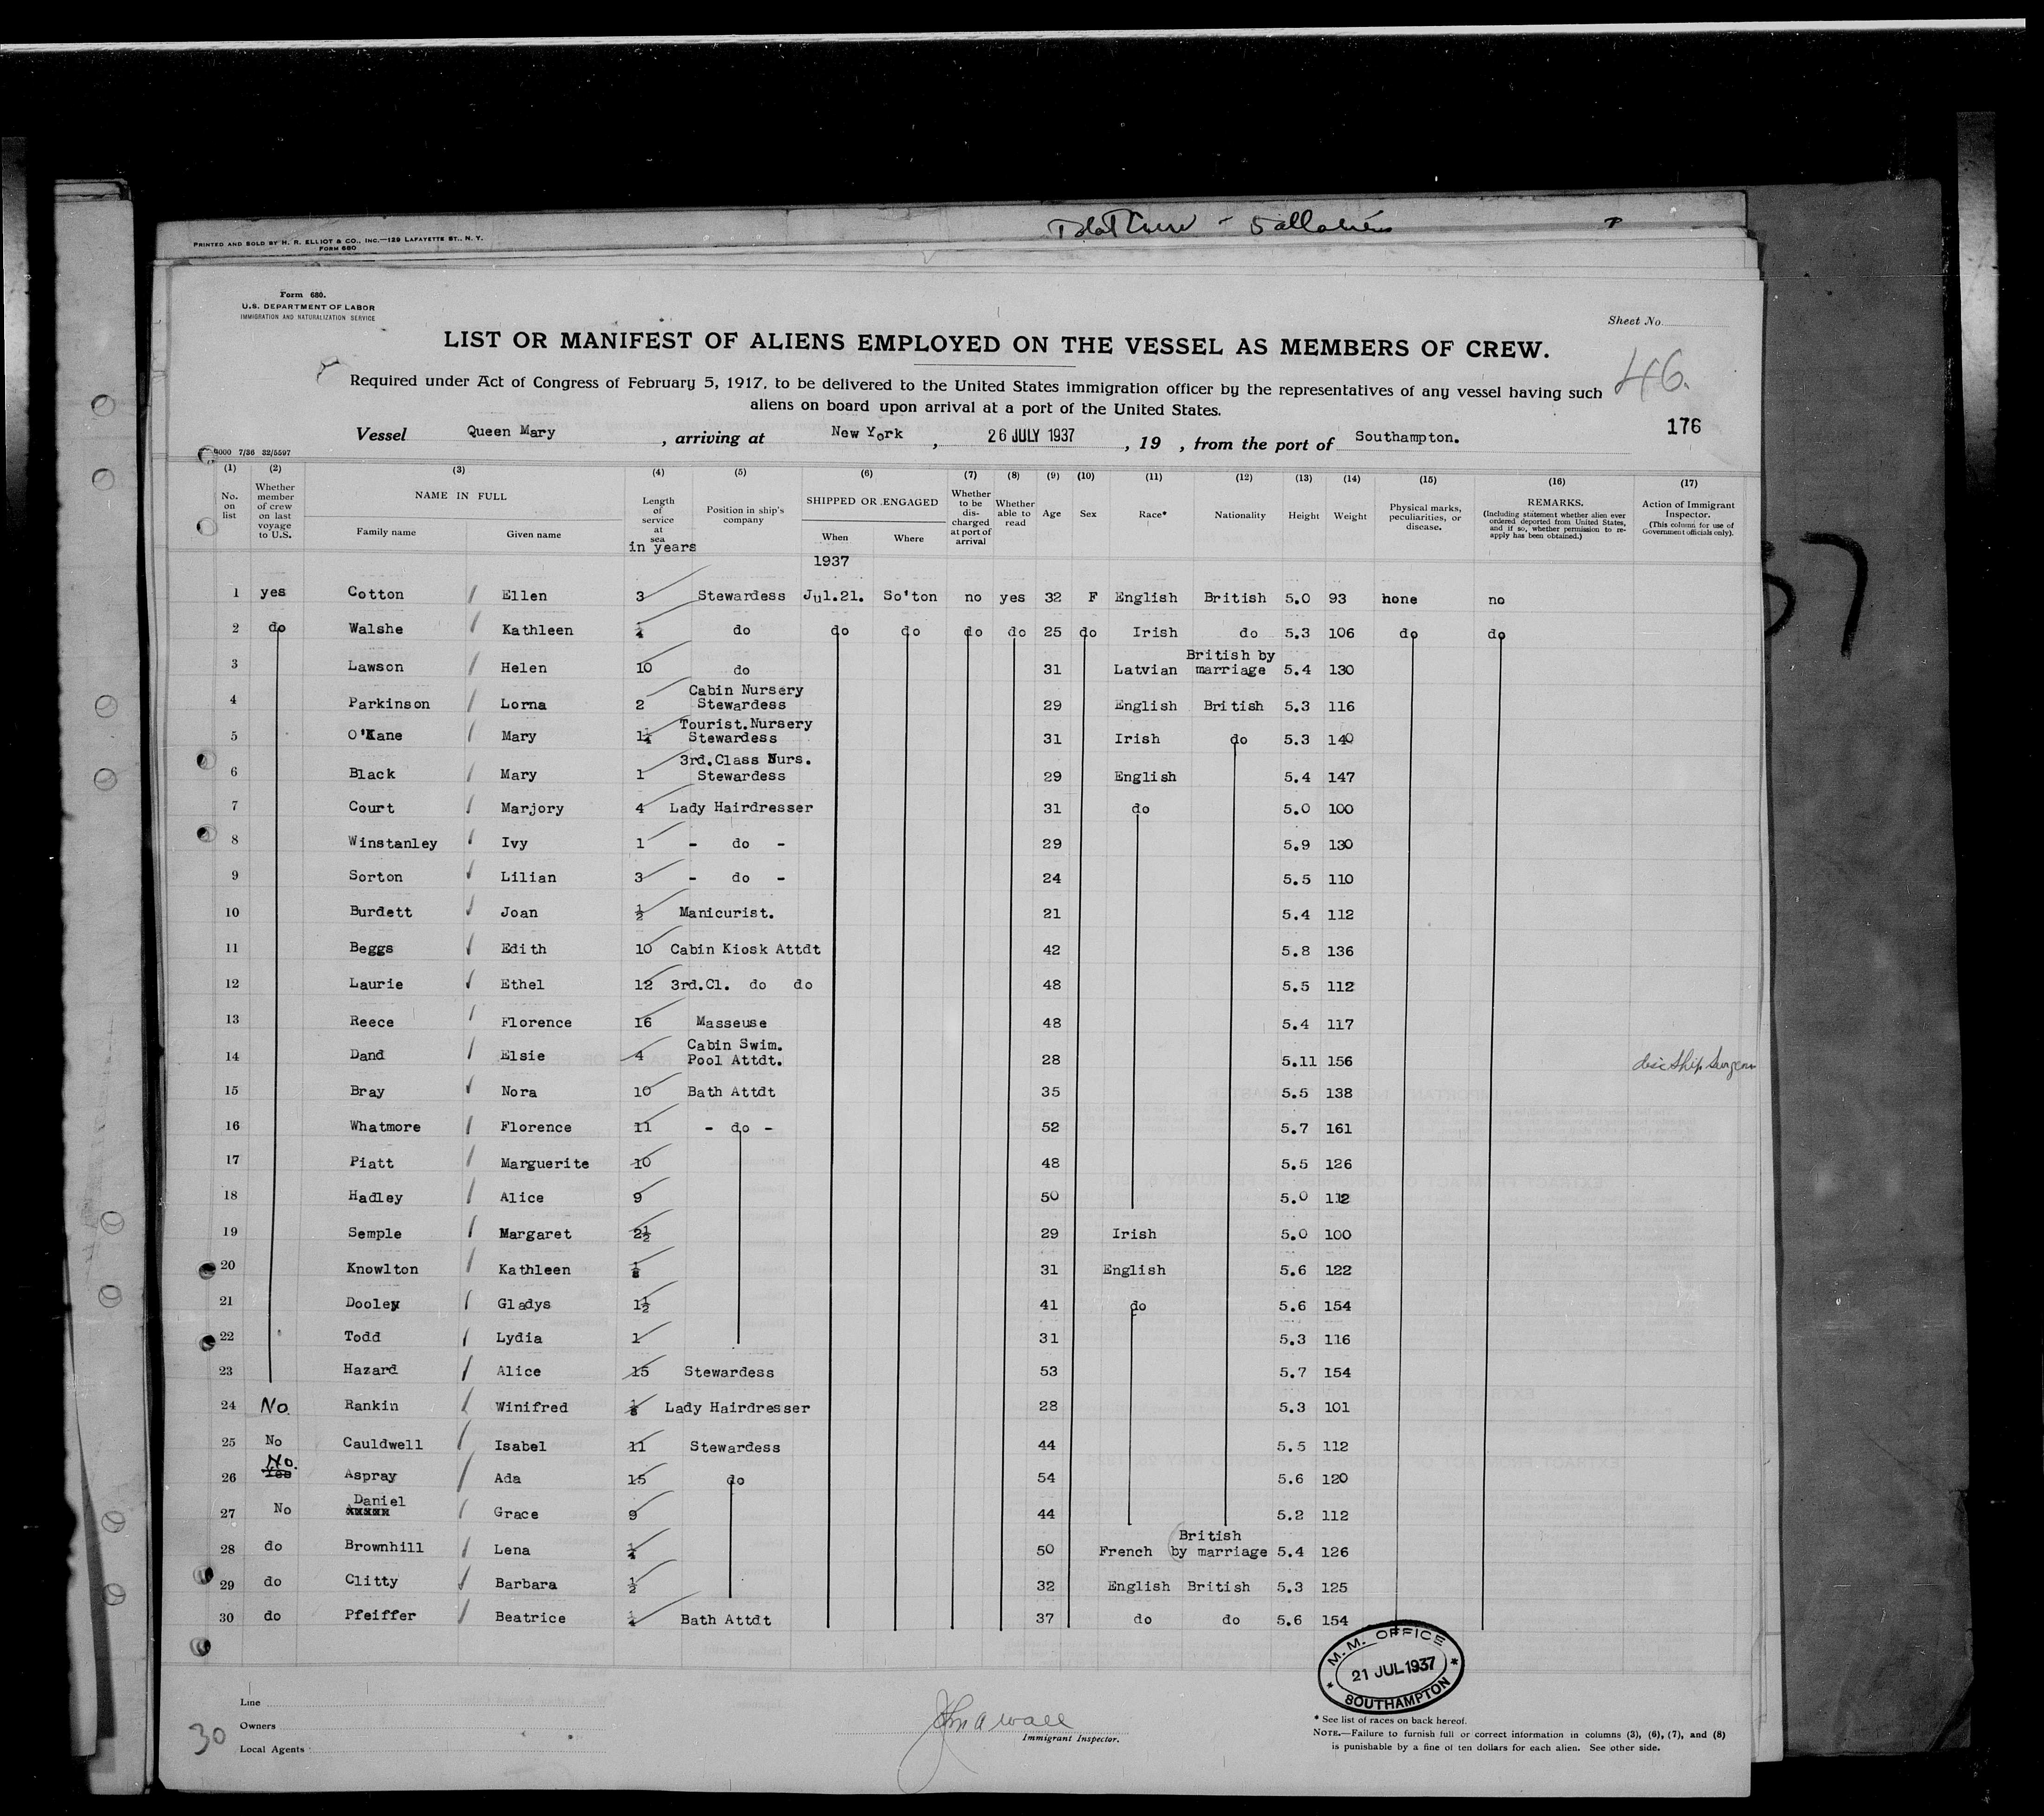 PRINTED AND SOLD BY H. R. ELLIOT & CO., INC.—129 LAFAYETTE ST., N. Y.
FORM 680
Form 680.
U.S. DEPARTMENT OF LABOR
IMMIGRATION AND NATURALIZATION SERVICE
Sheet No.
LIST OR MANIFEST OF ALIENS EMPLOYED ON THE VESSEL AS MEMBERS OF CREW.
46.
Required under Act of Congress of February 5, 1917, to be delivered to the United States immigration officer by the representatives of any vessel having such
aliens on board upon arrival at a port of the United States.
176
Vessel Queen Mary, arriving at New York, 26 JULY 1937, 19 , from the port of Southampton.
7/36 32/5597
(1) (2) (3) (4) (5) (6) (7) (8) (9) (10) (11) (12) (13) (14) (15) (16) (17)
No. on list
Whether member of crew on last voyage to U.S.
NAME IN FULL
Family name Given name
Length of service at sea
in years
Position in ship's company
SHIPPED OR ENGAGED
When Where
Whether to be discharged at port of arrival
Whether able to read
Age Sex Race* Nationality Height Weight
Physical marks, peculiarities, or disease.
REMARKS.
(Including statement whether alien ever ordered deported from United States, and if so, whether permission to re-apply has been obtained.)
Action of Immigrant Inspector.
(This column for use of Government officials only).
1937
1 yes Cotton Ellen 3 Stewardess Jul.21. So'ton no yes 32 F English British 5.0 93 none no
2 do Walshe Kathleen ¼ do do do do do 25 do Irish do 5.3 106 do do
3 Lawson Helen 10 do 31 Latvian British by marriage 5.4 130
4 Parkinson Lorna 2 Cabin Nursery Stewardess 29 English British 5.3 116
5 O'Kane Mary 1¼ Tourist.Nursery Stewardess 31 Irish do 5.3 140
6 Black Mary 1 3rd.Class Nurs. Stewardess 29 English 5.4 147
7 Court Marjory 4 Lady Hairdresser 31 do 5.0 100
8 Winstanley Ivy 1 - do - 29 5.9 130
9 Sorton Lilian 3 - do - 24 5.5 110
10 Burdett Joan ½ Manicurist. 21 5.4 112
11 Beggs Edith 10 Cabin Kiosk Attdt 42 5.8 136
12 Laurie Ethel 12 3rd.Cl. do do 48 5.5 112
13 Reece Florence 16 Masseuse 48 5.4 117
14 Dand Elsie 4 Cabin Swim. Pool Attdt. 28 5.11 156 Ship Surgeon
15 Bray Nora 10 Bath Attdt 35 5.5 138
16 Whatmore Florence 11 - do - 52 5.7 161
17 Piatt Marguerite 10 48 5.5 126
18 Hadley Alice 9 50 5.0 112
19 Semple Margaret 2½ 29 Irish 5.0 100
20 Knowlton Kathleen ⅛ 31 English 5.6 122
21 Dooley Gladys 1½ 41 do 5.6 154
22 Todd Lydia 1 31 5.3 116
23 Hazard Alice 15 Stewardess 53 5.7 154
24 No. Rankin Winifred ⅛ Lady Hairdresser 28 5.3 101
25 No Cauldwell Isabel 11 Stewardess 44 5.5 112
26 No. Yes Aspray Ada 15 do 54 5.6 120
27 No Daniel Grace 9 44 5.2 112
28 do Brownhill Lena ¼ 50 French British by marriage 5.4 126
29 do Clitty Barbara ½ 32 English British 5.3 125
30 do Pfeiffer Beatrice ¼ Bath Attdt 37 do do 5.6 154
M. M. OFFICE
21 JUL 1937
SOUTHAMPTON
Line
Owners
Local Agents
30
Immigrant Inspector.
* See list of races on back hereof.
NOTE.—Failure to furnish full or correct information in columns (3), (6), (7), and (8)
is punishable by a fine of ten dollars for each alien. See other side.